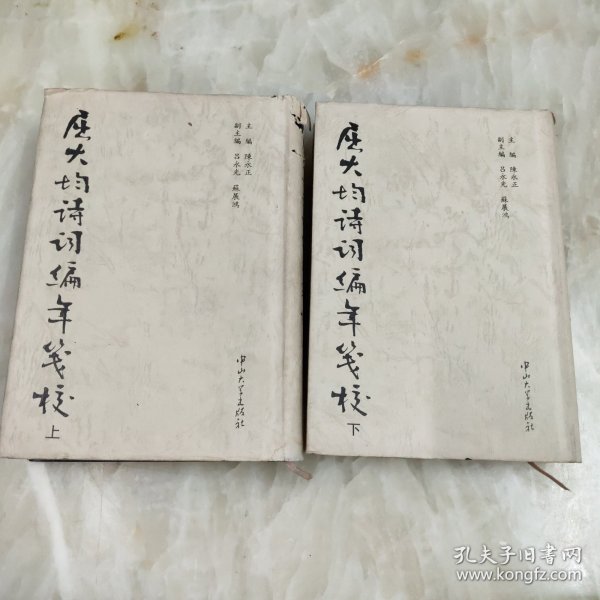 屈大均诗词编年箋校
上
主編 陳永正
副主編 吕永光 蘇展鴻
中山大学出版社
屈大均诗词编年箋校
下
主編 陳永正
副主編 吕永光 蘇展鴻
中山大学出版社
孔夫子旧书网
www.kongfz.com